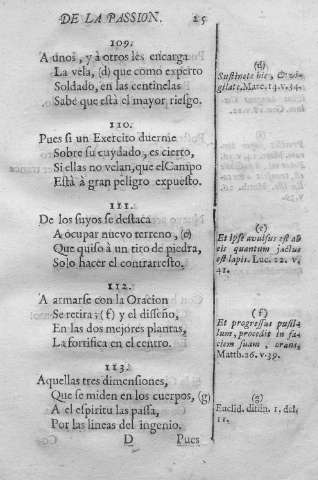 DE LA PASSION. 25
109.
A unos, y à otros les encarga
La vela, (d) que como experto
Soldado, en las centinelas
Sabe que està el mayor riesgo.
110.
Pues si un Exercito duerme
Sobre su cuydado, es cierto,
Si ellas no velan, que el Campo
Està à gran peligro expuesto.
111.
De los suyos se destaca
A ocupar nuevo terreno, (e)
Que quiso à un tiro de piedra,
Solo hacer el contrarresto.
112.
A armarse con la Oracion
Se retira: (f) y el diseño,
En las dos mejores plantas,
La fortifica en el centro.
113.
Aquellas tres dimensiones,
Que se miden en los cuerpos, (g)
A el espiritu las passa,
Por las lineas del ingenio.
D Pues
(d)
Sustinete hic, & vi-
gilate, Marc. 14. v. 34.
(e)
Et ipse avulsus est ab
eis quantum jactus
est lapis. Luc. 22. v.
41.
(f)
Et progressus pusil-
lum, procedit in fa-
ciem suam, orans,
Matth. 26. v. 39.
(g)
Euclid. difin. 1. del
11.